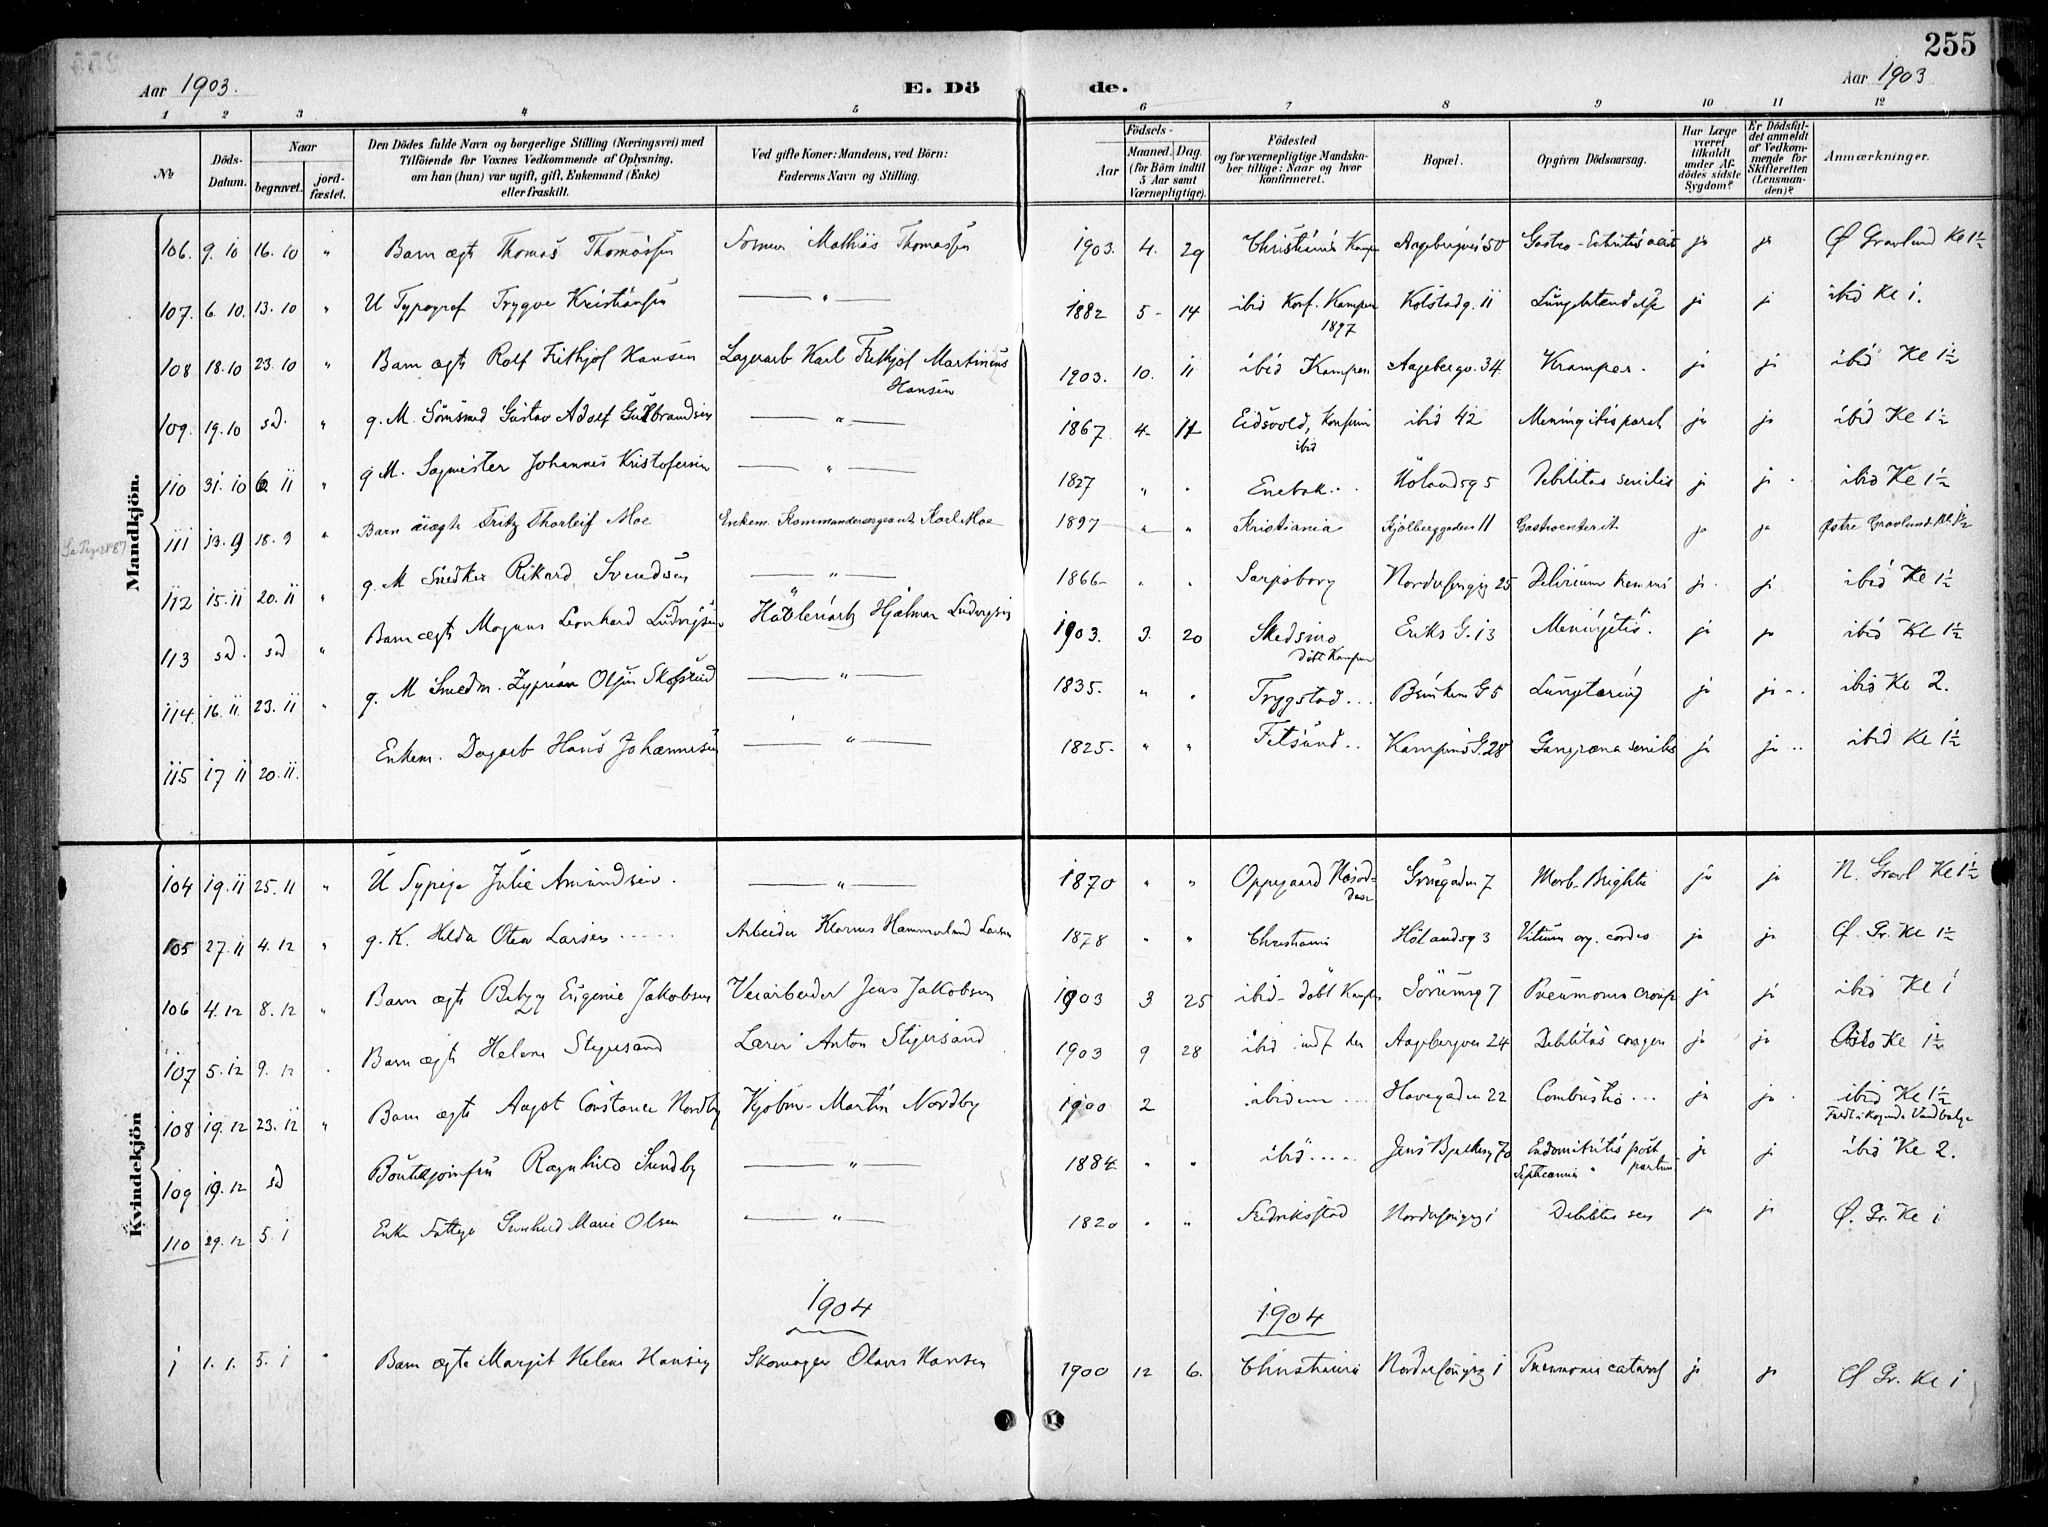 255
Aar 1903.
E. Döde.
Aar 1903
1 2 3 4 5 6 7 8 9 10 11 12
№
Döds-Datum.
Naar
begravet.
jord-fæstet.
Den Dödes fulde Navn og borgerlige Stilling (Næringsvei) med
Tilföiende for Voxnes Vedkommende af Oplysning,
om han (hun) var ugift, gift, Enkemand (Enke)
eller fraskilt.
Ved gifte Koner: Mandens, ved Börn:
Faderens Navn og Stilling.
Födsels-
Aar
Maaned. Dag.
(for Börn indtil
5 Aar samt
Værnepligtige).
Födested
og for værnepligtige Mandska-
ber tillige: Naar og hvor
konfirmeret.
Bopæl.
Opgiven Dödsaarsag.
Har Læge
været
tilkaldt
under Af-
dödes sidste
Sygdom?
Er Dödsfal-
det anmeldt
af Vedkom-
mende for
Skifteretten
(Lensman-
den)?
Anmærkninger.
Mandkjön.
106. 9. 10 16. 10 " Barn ægt Thomas Thomassen Mathias Thomassen 1903. 4. 29 Christiania Kampen Aagebergvei 50 ja ja Ø Gravlund Kl 1½
107. 6. 10. 13. 10 " U Typograf Trygve Kristiansen — " — 1882 5 - 14 ibid Konf. Kampen 1897 Kolstadg. 11 Lungebetændelse ja ja ibid Kl 1.
108 18. 10 23. 10 " Barn ægt Rolf Frithjof Hansen Lagerarb Karl Frithjof Martinius Hansen 1903. 10. 11 ibid Kampen Aagebergv. 34 Kramper. ja ja ibid Kl 1½
109. 19. 10 sd. " g. M. Gustav Adolf Gulbrandsen — " — 1867 4- 11 Eidsvold, ibid ibid 42 Meningitis ja ja ibid Kl 1½
110 31. 10 6. 11 " g M. Sagmester Johannes Kristofersen — " — 1827 " " Enebak.. Hölandsg 5 Debilitas senilis ja ja. ibid Kl 1½
111 13. 9 18. 9 " Barn uægte Fritz Thorleif Moe Enkem. Kommandersergeant Karl Moe 1897 " " Kristiania Kjölberggaden 11 Gastroenterit ja ja Østre Gravlund Kl 1½
112 15. 11 20. 11 " g. M Snedker Rikard Svendsen — " — 1866- " " Sarpsborg 25 Delirium tremens ja. ja ibid Kl 1½
113 sd. sd " Barn ægt Magnus Leonhard Ludvigsen Hjalmar Ludvigsen 1903. 3. 20 Skedsmo döbt Kampen Eriks G. 13 Meningitis. ja ja ibid Kl 1½
114. 16. 11 23. 11 " g. M Smedm. Olsen — " — 1835. " " Trygstad... G 5 Lungetæring ja ja.. ibid Kl 2.
115 17 11 20. 11. Enkem. Dagarb Hans Johannesen — " — 1825- " " Fetsund.. Kampens G. 28 Gangræna senilis ja ja.. ibid Kl 1½
Kvindekjön
104 19. 11 25. 11 " U Sypige Julie Amundsen. — " — 1870 " " Oppegaard Næsodden Gruegaden 7 Morb. Brightii ja ja N. Gravl Kl 1½
105 27. 11 4. 12 " g. K. Hilda Otea Larsen Arbeider Hammerlund Larsen 1878 " " Christiania Hölandsg 3 Vitium org. cordis ja ja Ø. Gr. Kl 1½
106 4. 12 8. 12 " Barn ægt Betzy Eugenie Jakobsen Veiarbeider Jens Jakobsen 1903 3 25 ibid - döbt Kampen Sörumsg 7 Pneumonia croup ja ja ibid Kl 1
107 5. 12 9. 12 Barn ægt Helene Stigersand Lærer Anton Stigersand 1903 9 28 ibid Aagebergvei 24 Debilitas congen ja ja Oslo Kl 1½
108 19. 12 23. 12 " Barn ægt Aagot Constance Nordby Kjöbm. Martin Nordby 1900 2 ibidem... Havegaden 22 Combustio... ja ja. ibid Kl 1½
Faldt i kogende Vandbalje
109 19. 12 sd Ragnhild Sundby — " — 1884 " " ibid..... Jens Bjelkesg 70 Endometritis post partum Septicæmia ja ja ibid Kl 2.
110 29. 12 5. 1 Enke Gunhild Marie Olsen — " — 1820 " " Fredriksstad 1 Debilitas sen ja ja Ø. Gr. Kl 1
1904 1904
1 1. 1. 5. 1 " Barn ægte Margit Helene Hansen Skomager Olaves Hansen 1900 12 6. Christiania 1 Pneumonia catarrh ja ja Ø Gr. Kl 1